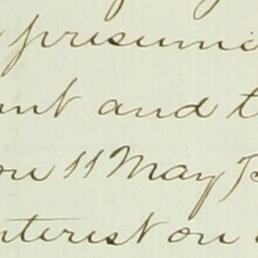 presumi
unt and t
on 11 May
nterest on